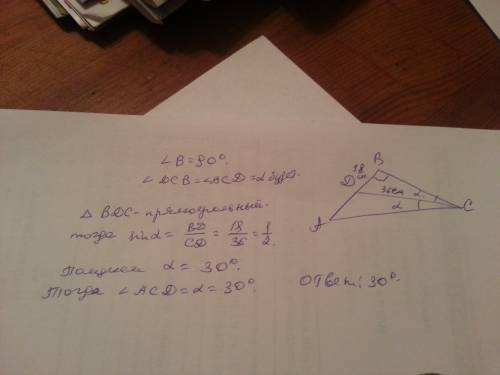 ∠B=90°.
∠DCB=∠ACD=α будет.
Δ BDC - прямоугольный.
тогда sinα = BD/CD = 18/36 = 1/2.
Получаем α = 30°.
Тогда ∠ACD=α=30°.
Ответ: 30°.
B
18 см
D
36 см
α
α
C
A